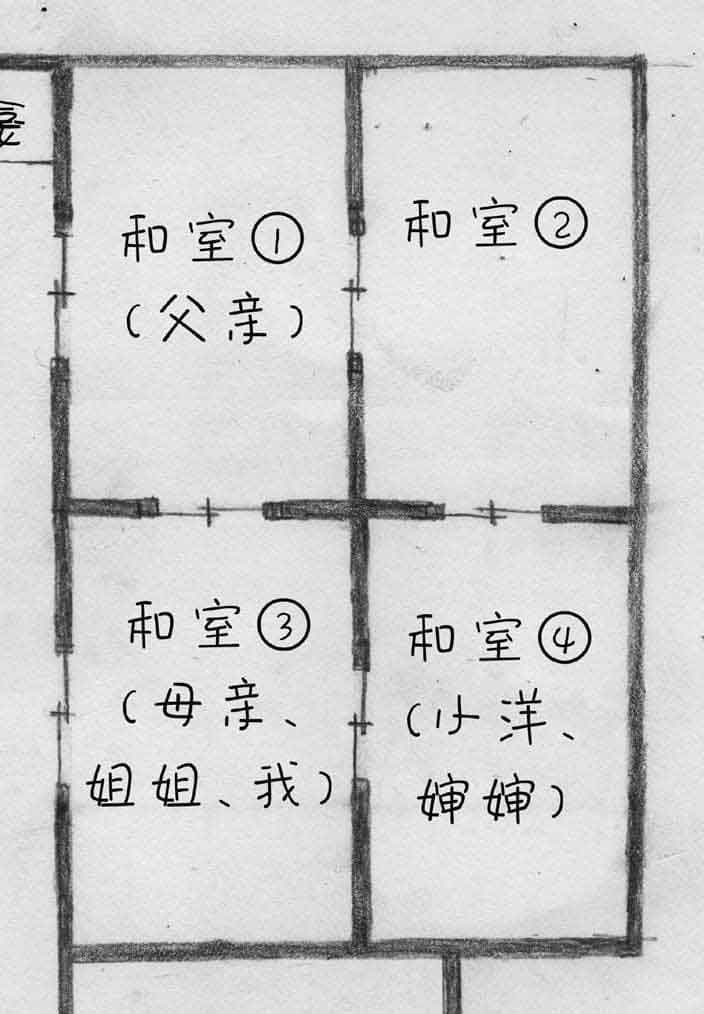 和室①
(父亲)
和室②
和室③
(母亲、
姐姐、我)
和室④
(小洋、
婶婶)